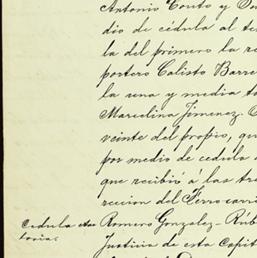 Antonio Couto y Do
dio de cédula al te
la del primero la re
portero Calisto Barre
la una y media ta
Marcelina Jimenez.
veinte del propio, que
por medio de cedula
que recibió á las tre
reccion del Ferrocarri
Cedula Romero Gonzalez-Rúb
toria. Justicia de esta Capit